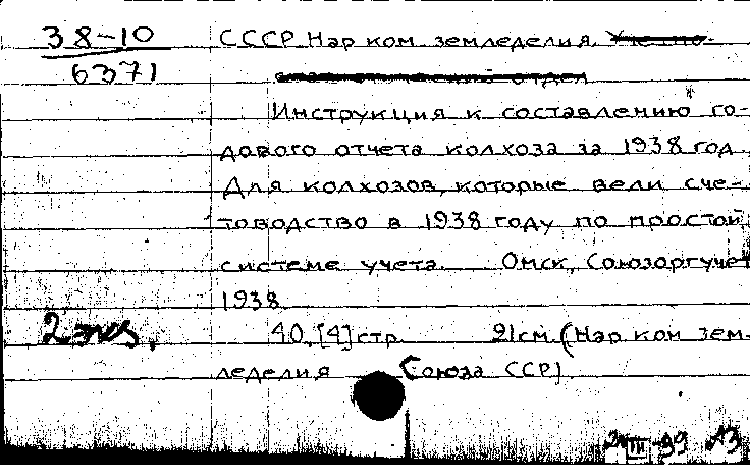 38-10
6371
СССР. Нар. ком. земледелия. Учетно-
отдел
Инструкция к составлению го-
дового отчета колхоза за 1938 год.
Для колхозов, которые вели сче-
товодство в 1938 году по простой
системе учета. Омск, Союзоргучет
1938.
2 экз.
40, [4] стр. 21 см. (Нар. ком. зем-
леделия Союза ССР)